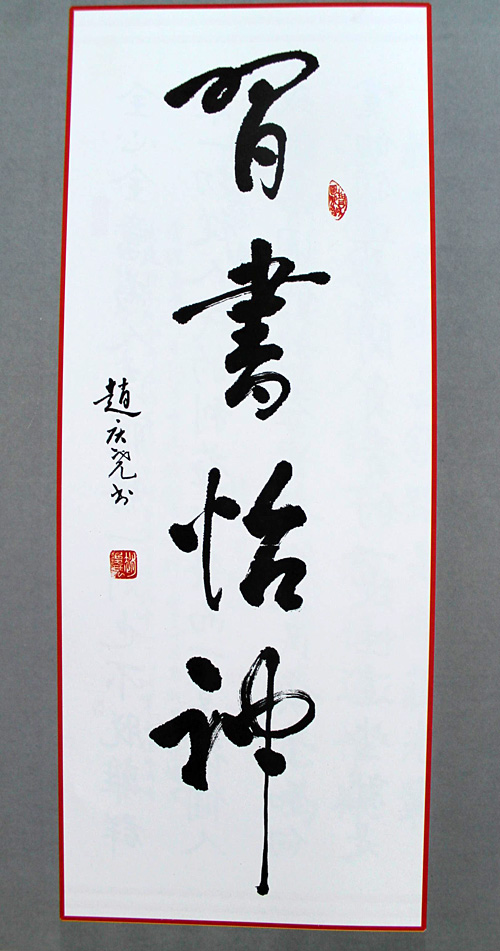 習書怡神
趙庆堯书